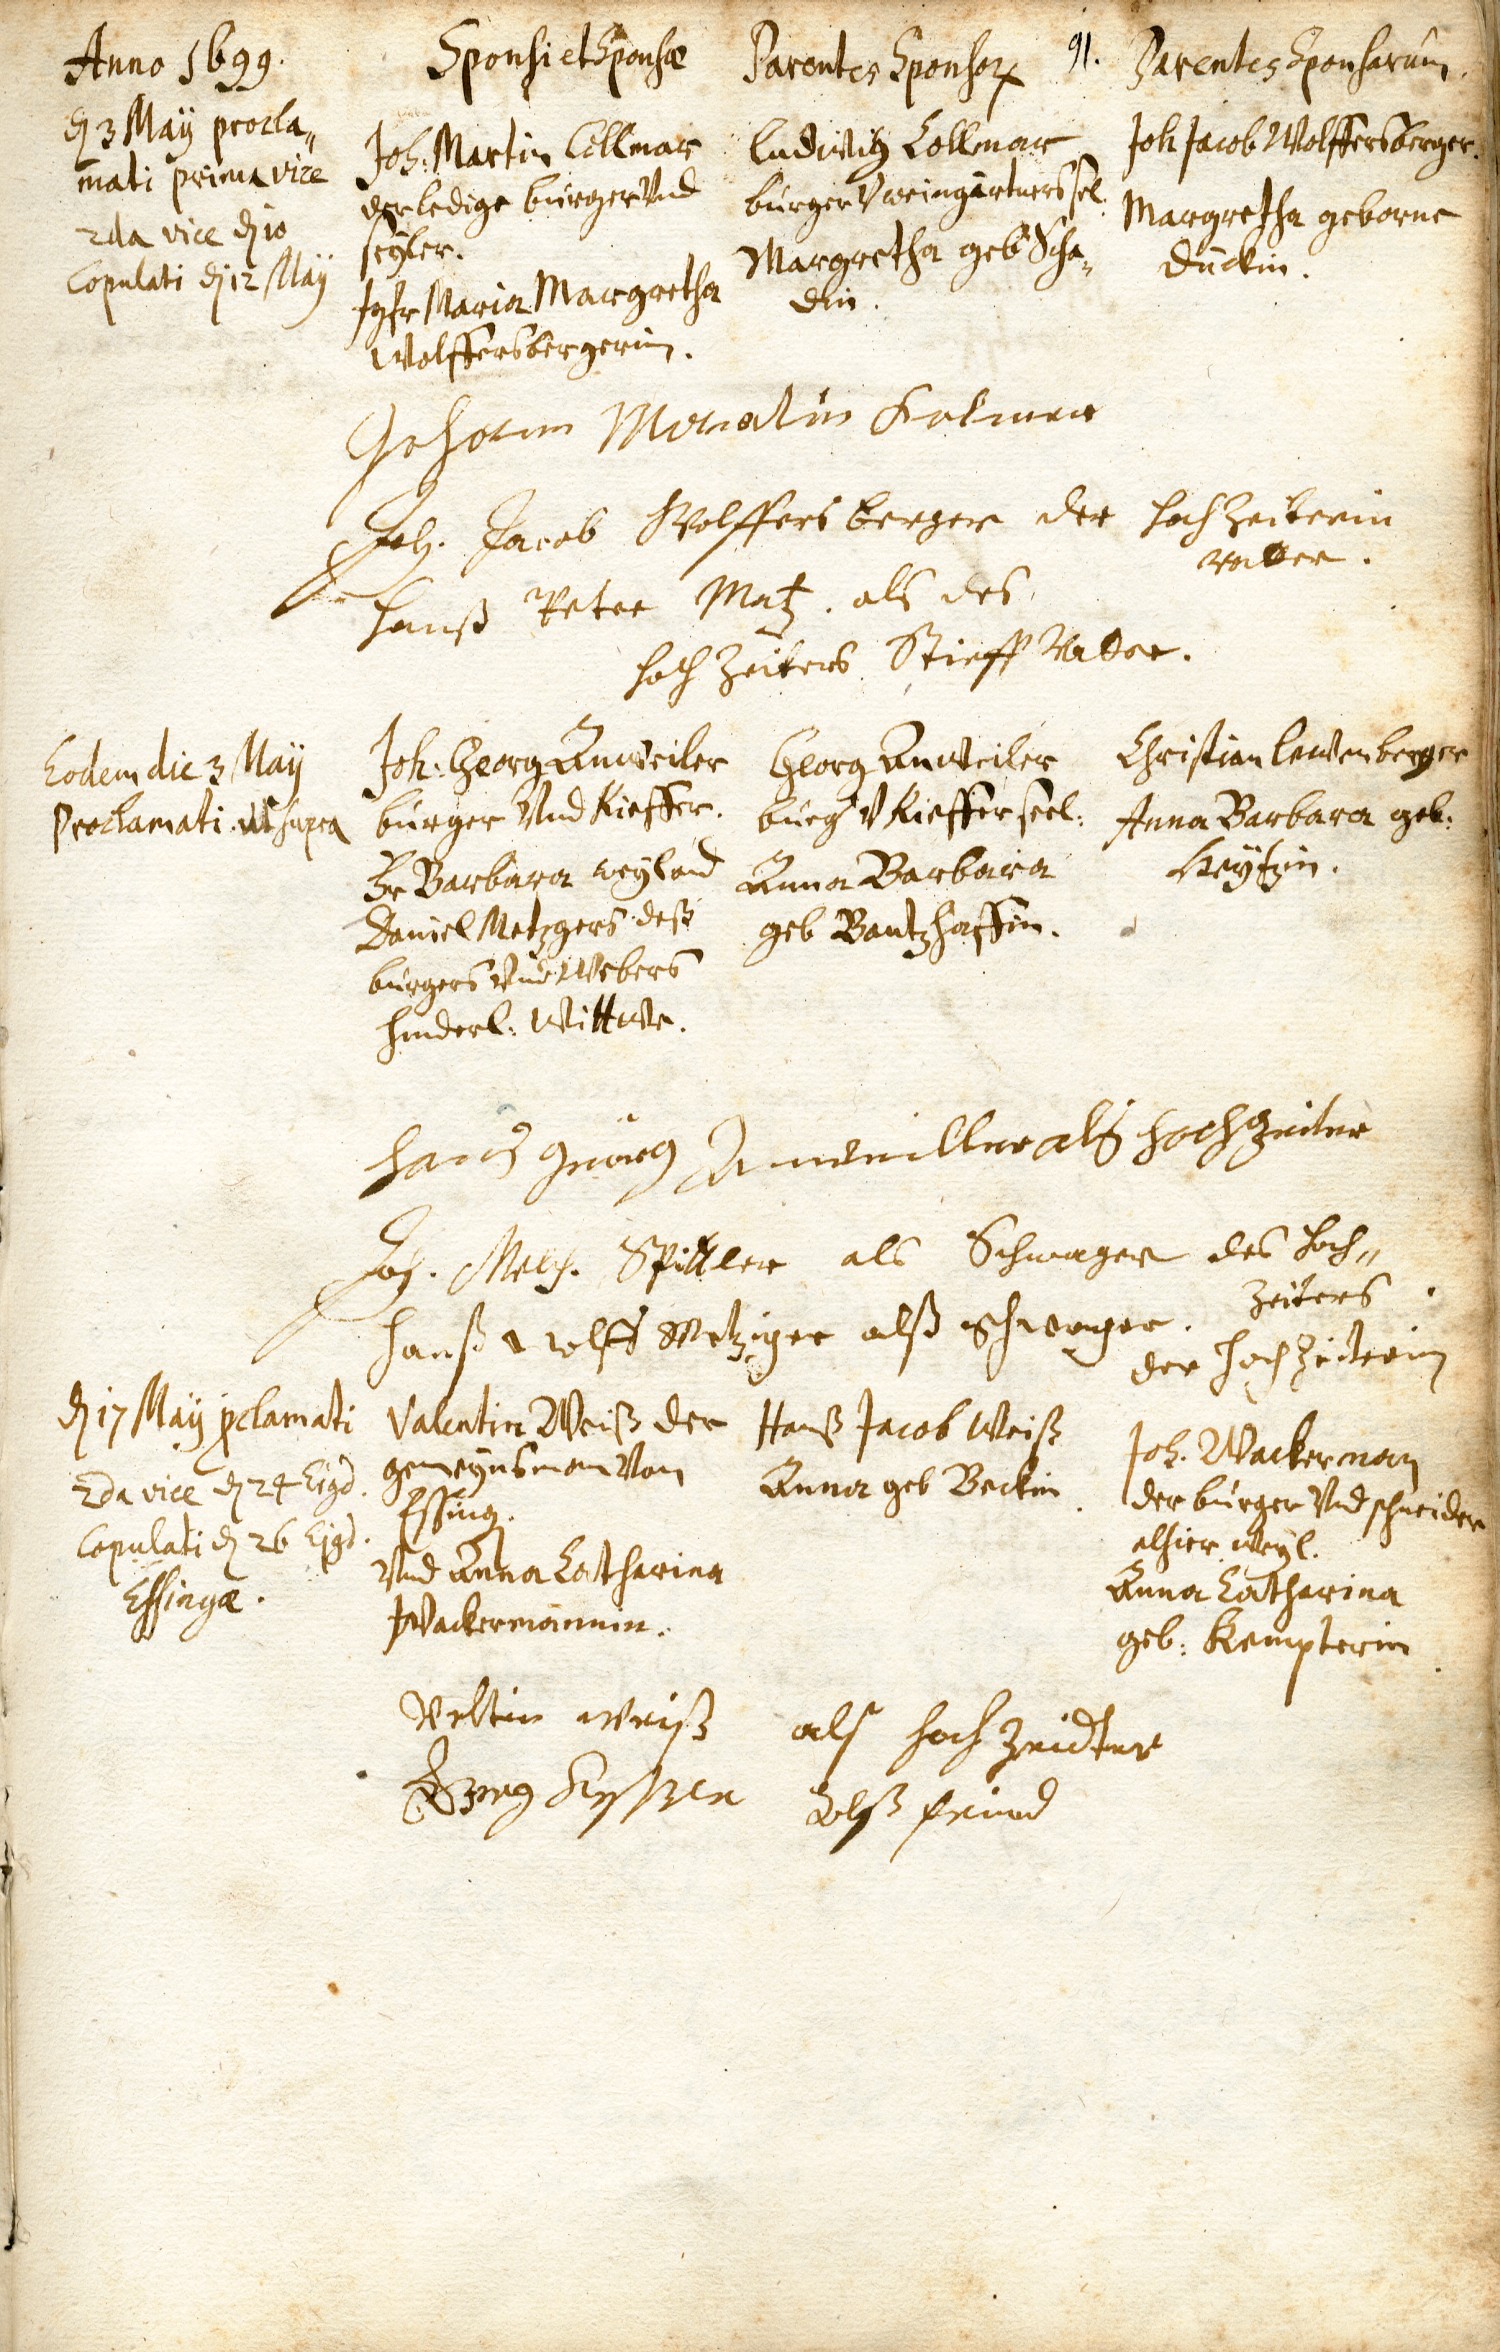 Anno 1699.
Sponsi et Sponsæ
Parentes Sponsor
91.
Parentes Sponsarum.
d 3 May procla„
mati prima vice
2da vice d 10
Copulati d 12 May
Joh: Martin Collmar
der ledige burger Vnd
seyler.
Jgfr Maria Margretha
Wolffersbergerin.
Ludwig Collmar
burger V weingärtners sel.
Margretha geb Scha„
din.
Joh Jacob Wolffersberger.
Margretha geborne
Duckin.
Johann Kolmar
Joh. Jacob Wolffersberger der hochzeiterin
vatter.
Hanß Peter Matz. als des
hochzeiters Stieff Vatter.
Eodem die 3 May
Proclamati ut supra
Joh: Georg Anweiler
burger Vnd Kieffer.
Fr Barbara weyland
Daniel Metzgers deß
burgers Vnd Webers
hinderl: Wittwe.
Georg Anweiler
burg V Kieffer seel:
Anna Barbara
geb Bantzhaffin.
Christian Lewenberger
Anna Barbara geb:
Hanß Görg Anweiller alß hochzeiter
Joh. Melch. Spittler als Schwager des hoch„
zeiters.
Hanß wolff Metzger alß schwager.
der hochzeiterin
d 17 May pclamati
2da vice d 24 Ejsd.
Copulati d 26 Ejsd.
Essingæ.
Valentin Weiß der
gemeynsman Von
Essing.
Vnd Anna Catharina
Wackermännin.
Hanß Jacob Weiß
Anna geb Beckin.
Joh. Wackerman
der burger Vnd schneider
alhier weyl.
Anna Catharina
geb: Kempterin.
Veltin weiß als hoch zeidter
Görg alß freind